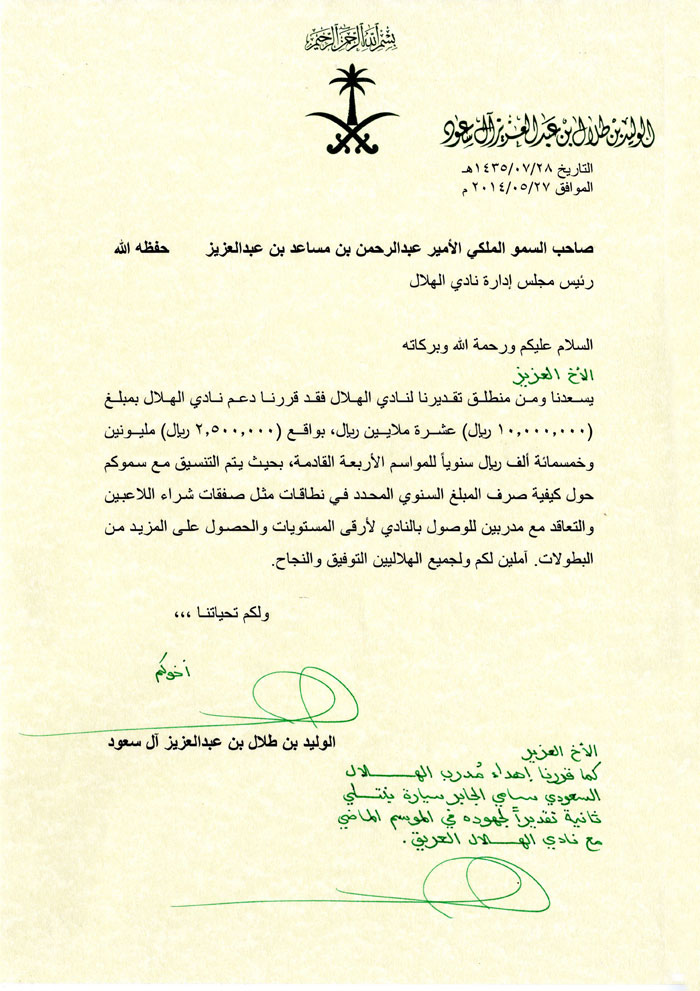 بسم الله الرحمن الرحيم
الوليد بن طلال بن عبد العزيز آل سعود
التاريخ ١٤٣٥/٠٧/٢٨هـ
الموافق ٢٠١٤/٠٥/٢٧ م
صاحب السمو الملكي الأمير عبدالرحمن بن مساعد بن عبدالعزيز حفظه الله
رئيس مجلس إدارة نادي الهلال
السلام عليكم ورحمة الله وبركاته
الأخ العزيز
يسعدنا ومن منطلق تقديرنا لنادي الهلال فقد قررنا دعم نادي الهلال بمبلغ
(١٠,٠٠٠,٠٠٠ ريال) عشرة ملايين ريال، بواقع (٢,٥٠٠,٠٠٠ ريال) مليونين
وخمسمائة ألف ريال سنوياً للمواسم الأربعة القادمة، بحيث يتم التنسيق مع سموكم
حول كيفية صرف المبلغ السنوي المحدد في نطاقات مثل صفقات شراء اللاعبين
والتعاقد مع مدربين للوصول بالنادي لأرقى المستويات والحصول على المزيد من
البطولات. آملين لكم ولجميع الهلاليين التوفيق والنجاح.
ولكم تحياتنا ،،،
أخوكم
الوليد بن طلال بن عبدالعزيز آل سعود
الأخ العزيز
كما قررنا إهداء مُدرب الهلال
السعودي سامي الجابر سيارة بنتلي
ثانية تقديراً لجهوده في الموسم الماضي
مع نادي الهلال العريق.